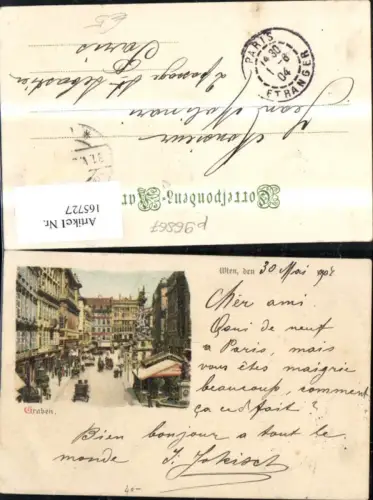 PARIS
1 30
1 - 6
04
ETRANGER
Monsieur
Jean Molinari
2 passage St. Sébastien
Paris
Correspondenz-Kar
Artikel Nr.
165727
p96867
Wien, den 30 Mai 904
Graben.
Chèr ami.
Quoi de neuf
a Paris, mais
vous êtes maigrie
beaucoup, comment
ça ce fait?
Bien bonjour a tout le
monde J. Jokisch